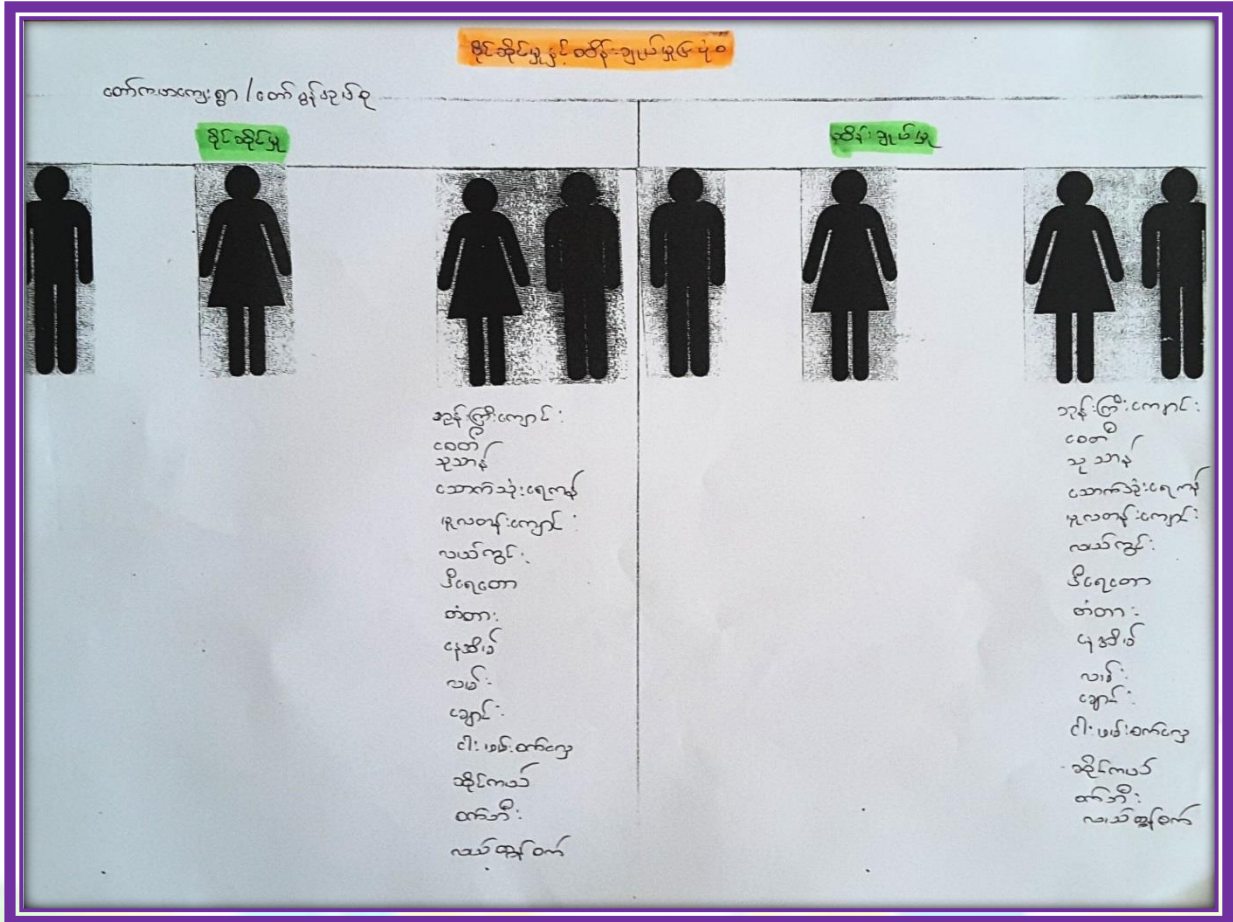 ပိုင်ဆိုင်မှုနှင့်ထိန်းချုပ်မှုပုံစံ
တော်ကဟကျေးရွာ / တော်မွန်အုပ်စု
ပိုင်ဆိုင်မှု
ထိန်းချုပ်မှု
ဘုန်းကြီးကျောင်း
စေတီ
သုသာန်
သောက်သုံးရေကန်
မူလတန်းကျောင်း
လယ်ကွင်း
ဒီရေတော
တံတား
နေအိမ်
လမ်း
ချောင်း
ငါးဖမ်းစက်လှေ
ဆိုင်ကယ်
စက်ဘီး
လယ်ထွန်စက်
ဘုန်းကြီးကျောင်း
စေတီ
သုသာန်
သောက်သုံးရေကန်
မူလတန်းကျောင်း
လယ်ကွင်း
ဒီရေတော
တံတား
နေအိမ်
လမ်း
ချောင်း
ငါးဖမ်းစက်လှေ
ဆိုင်ကယ်
စက်ဘီး
လယ်ထွန်စက်